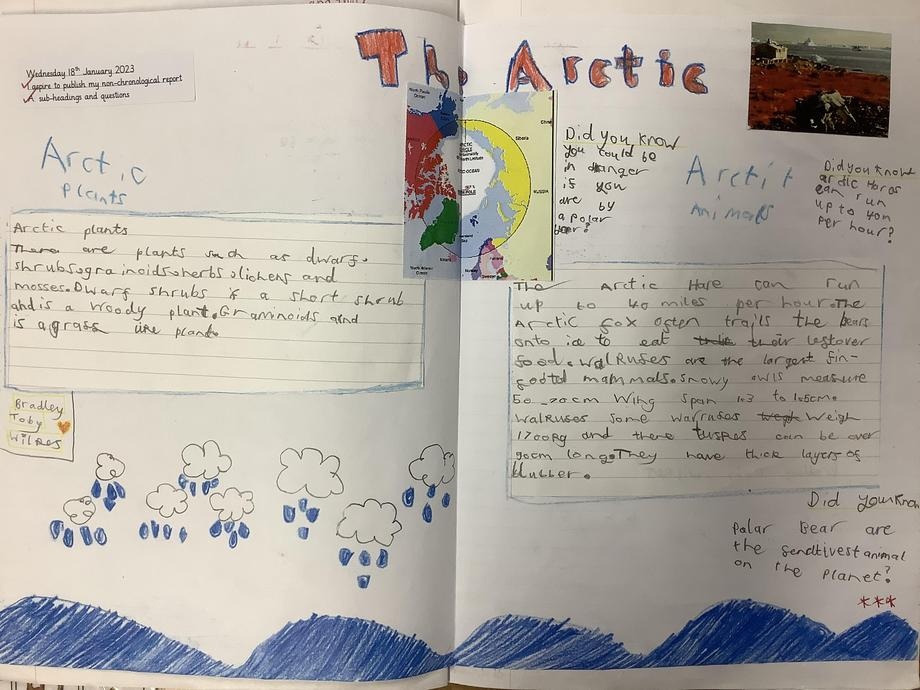 The Arctic
Wednesday 18th January 2023
I aspire to publish my non-chronological report
sub-headings and questions
Arctic
Plants
Arctic plants
There are plants such as dwarf
shrubs, grainoids, herbs, lichens and
mosses. Dwarf shrubs is a short shrub
and is a woody plant. Graminoids and
is a grass like plant.
Bradley
Toby
Wilfles
North Pacific
Ocean
China
Siberia
ARCTIC
CIRCLE
OCEAN
RUSSIA
Iceland
Norway
Finland
Sweden
North Atlantic
Ocean
Did you know
you could be
in danger
if you
are by
a polar
bear?
Arctit
Animals
Did you know
arctic hares
can run
up to 40m
per hour?
The Arctic Hare can run
up to 40 miles per hour. The
Arctic fox often trails the bears
onto ice to eat their leftover
food. walRuses are the largest fin-
footed mammals. snowy owls measure
50-70cm Wing span 1.3 to 1.5cm.
Walruses some warruses Weigh
1700kg and there tuspes can be over
90cm long. They have thick layers of
blubber.
Did you know
Polar Bear are
the sendtivest animal
on the planet?
***